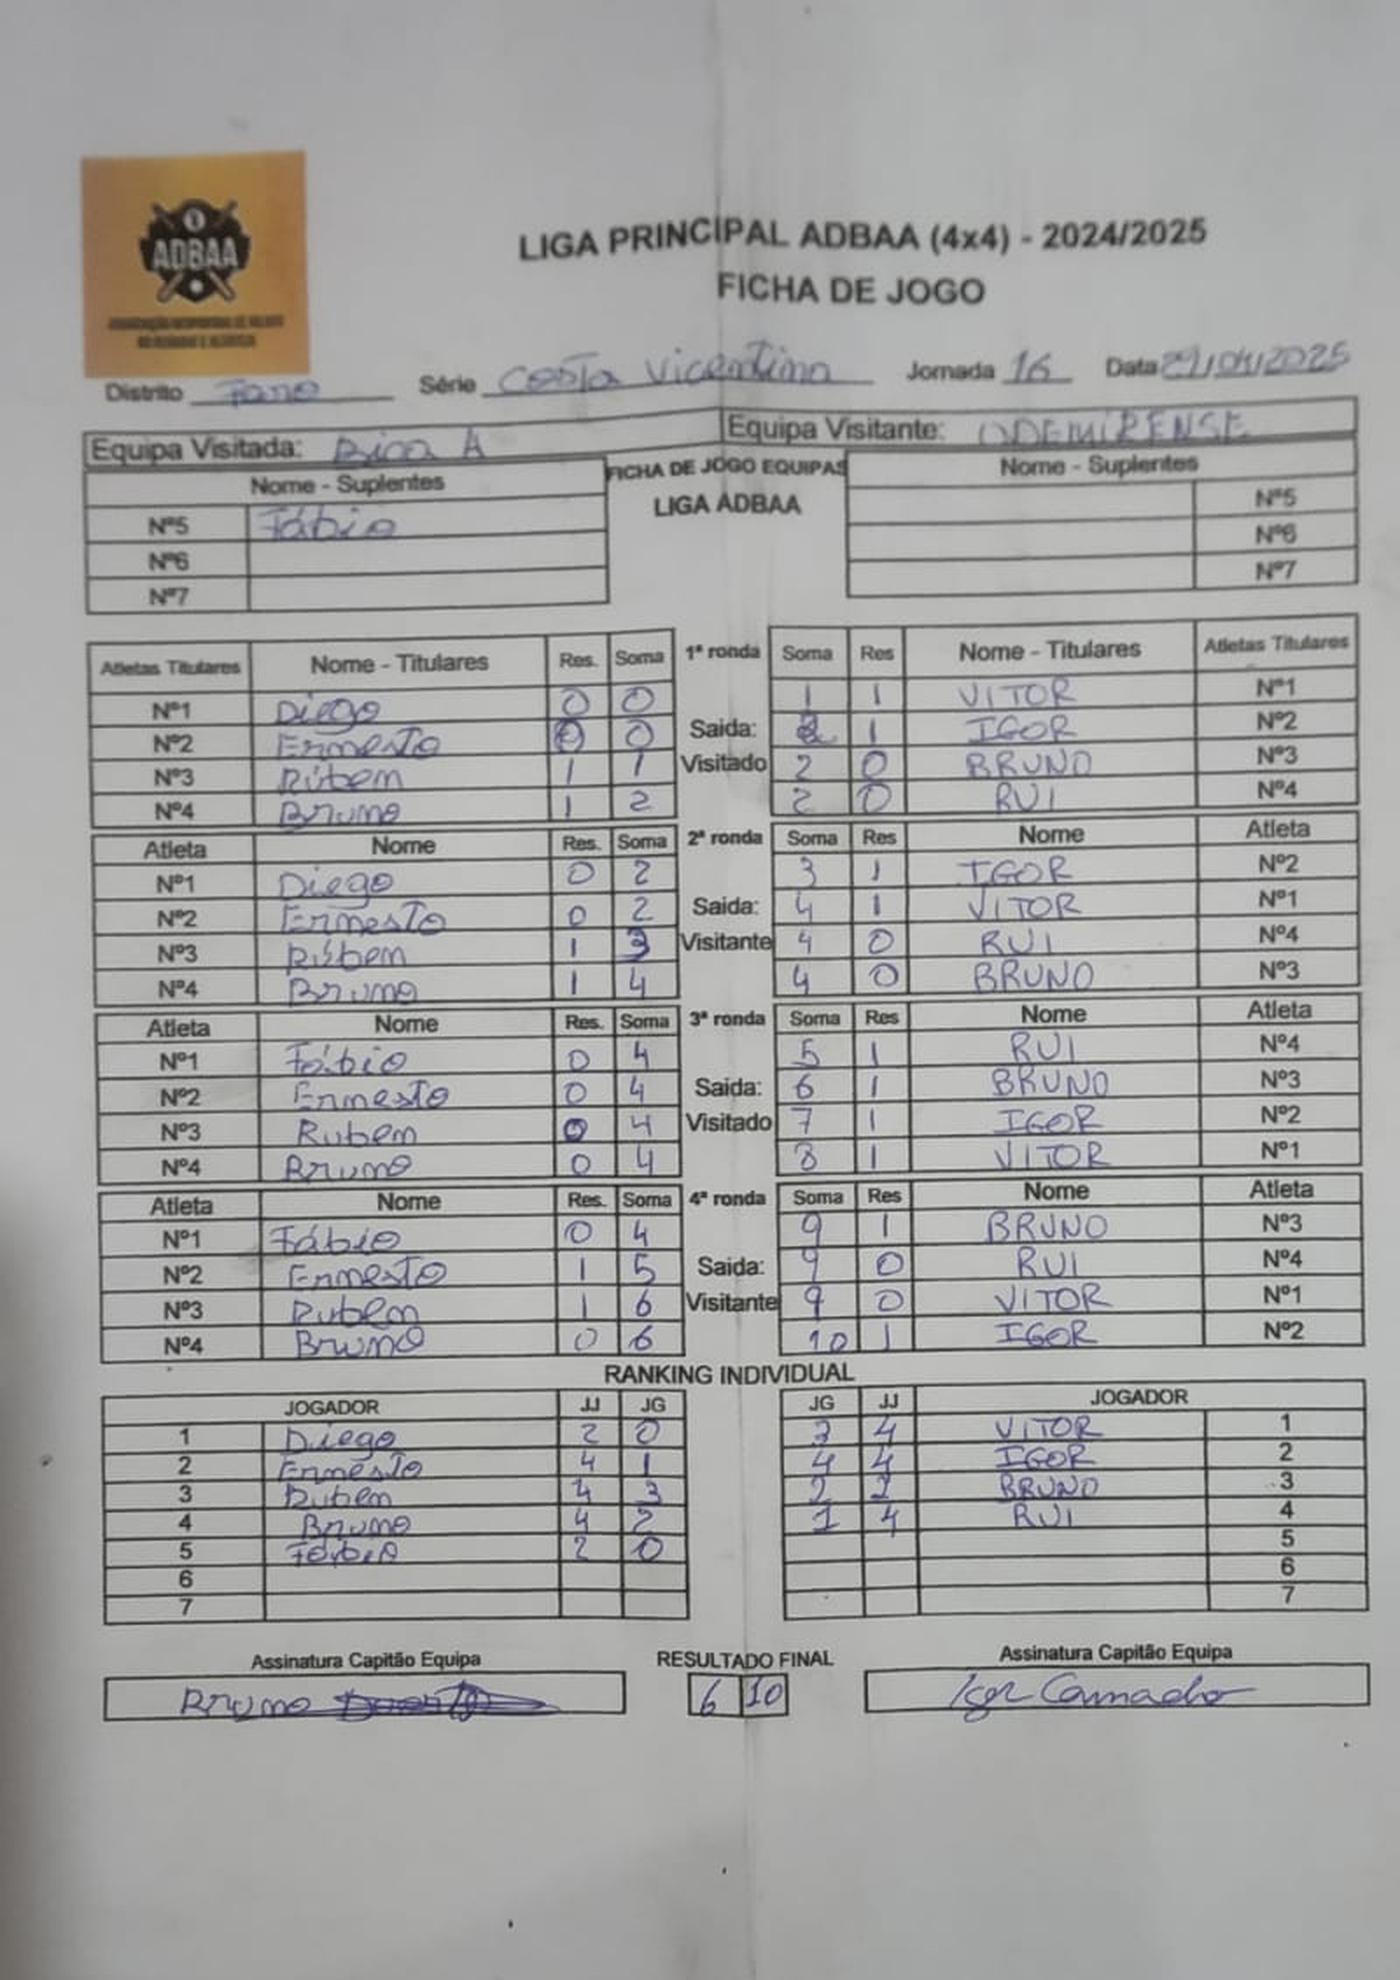 ADBAA
LIGA PRINCIPAL ADBAA (4x4) - 2024/2025
FICHA DE JOGO
Distrito Faro Série Costa Vicentina Jornada 16 Data 29/04/2025
Equipa Visitada: Bica A Equipa Visitante: ODEMIRENSE
Nome - Suplentes FICHA DE JOGO EQUIPAS Nome - Suplentes
LIGA ADBAA
Nº5 Fábio Nº5
Nº6 Nº6
Nº7 Nº7
Atletas Titulares Nome - Titulares Res. Soma 1ª ronda Soma Res Nome - Titulares Atletas Titulares
Nº1 Diego 0 0 1 1 VITOR Nº1
Nº2 Ernesto 0 0 Saida: 2 1 IGOR Nº2
Nº3 Rúbem 1 1 Visitado 2 0 BRUNO Nº3
Nº4 Bruno 1 2 2 0 RUI Nº4
Atleta Nome Res. Soma 2ª ronda Soma Res Nome Atleta
Nº1 Diego 0 2 3 1 IGOR Nº2
Nº2 Ernesto 0 2 Saida: 4 1 VITOR Nº1
Nº3 Rúbem 1 3 Visitante 4 0 RUI Nº4
Nº4 Bruno 1 4 4 0 BRUNO Nº3
Atleta Nome Res. Soma 3ª ronda Soma Res Nome Atleta
Nº1 Fábio 0 4 5 1 RUI Nº4
Nº2 Ernesto 0 4 Saida: 6 1 BRUNO Nº3
Nº3 Rubem 0 4 Visitado 7 1 IGOR Nº2
Nº4 Bruno 0 4 8 1 VITOR Nº1
Atleta Nome Res. Soma 4ª ronda Soma Res Nome Atleta
Nº1 Fábio 0 4 9 1 BRUNO Nº3
Nº2 Ernesto 1 5 Saida: 9 0 RUI Nº4
Nº3 Rubem 1 6 Visitante 9 0 VITOR Nº1
Nº4 Bruno 0 6 10 1 IGOR Nº2
RANKING INDIVIDUAL
JOGADOR JJ JG JG JJ JOGADOR
1 Diego 2 0 3 4 VITOR 1
2 Ernesto 4 1 4 4 IGOR 2
3 Rubem 4 3 2 BRUNO 3
4 Bruno 4 2 1 4 RUI 4
5 Fábio 2 0 5
6 6
7 7
Assinatura Capitão Equipa RESULTADO FINAL Assinatura Capitão Equipa
Bruno 6 10 Igor Camacho